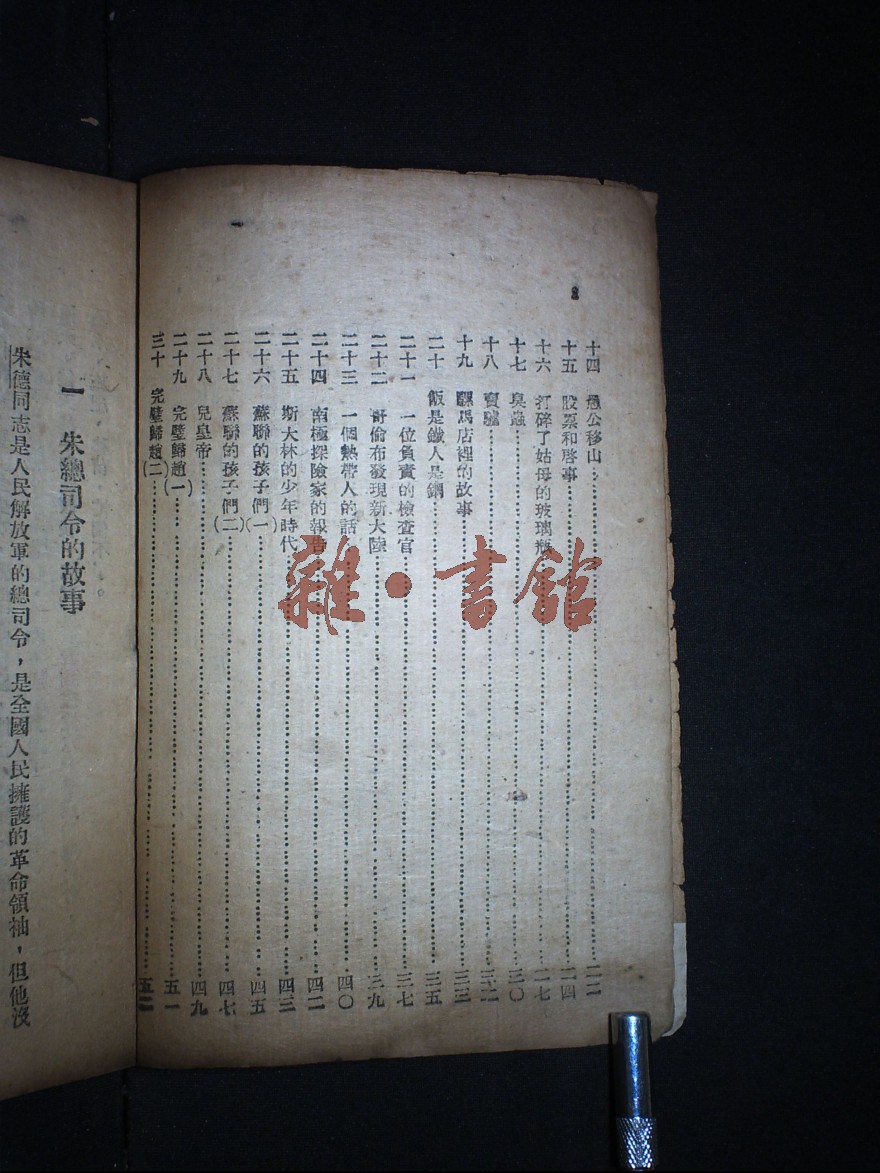 2
十四 愚公移山……二二
十五 股票和啓事……二四
十六 打碎了姑母的玻璃瓶……二七
十七 臭蟲……三〇
十八 賣驢……三二
十九 騾馬店裡的故事……三三
二十 飯是鐵人是鋼……三五
二十一 一位負責的檢查官……三七
二十二 哥倫布發現新大陸……三九
二十三 一個熱帶人的話……四〇
二十四 南極探險家的報告……四二
二十五 斯大林的少年時代……四三
二十六 蘇聯的孩子們(一)……四五
二十七 蘇聯的孩子們(二)……四七
二十八 兒皇帝……四九
二十九 完璧歸趙(一)……五一
三十 完璧歸趙(二)……五二
一 朱總司令的故事
朱德同志是人民解放軍的總司令，是全國人民擁護的革命領袖，但他沒
雜·書館